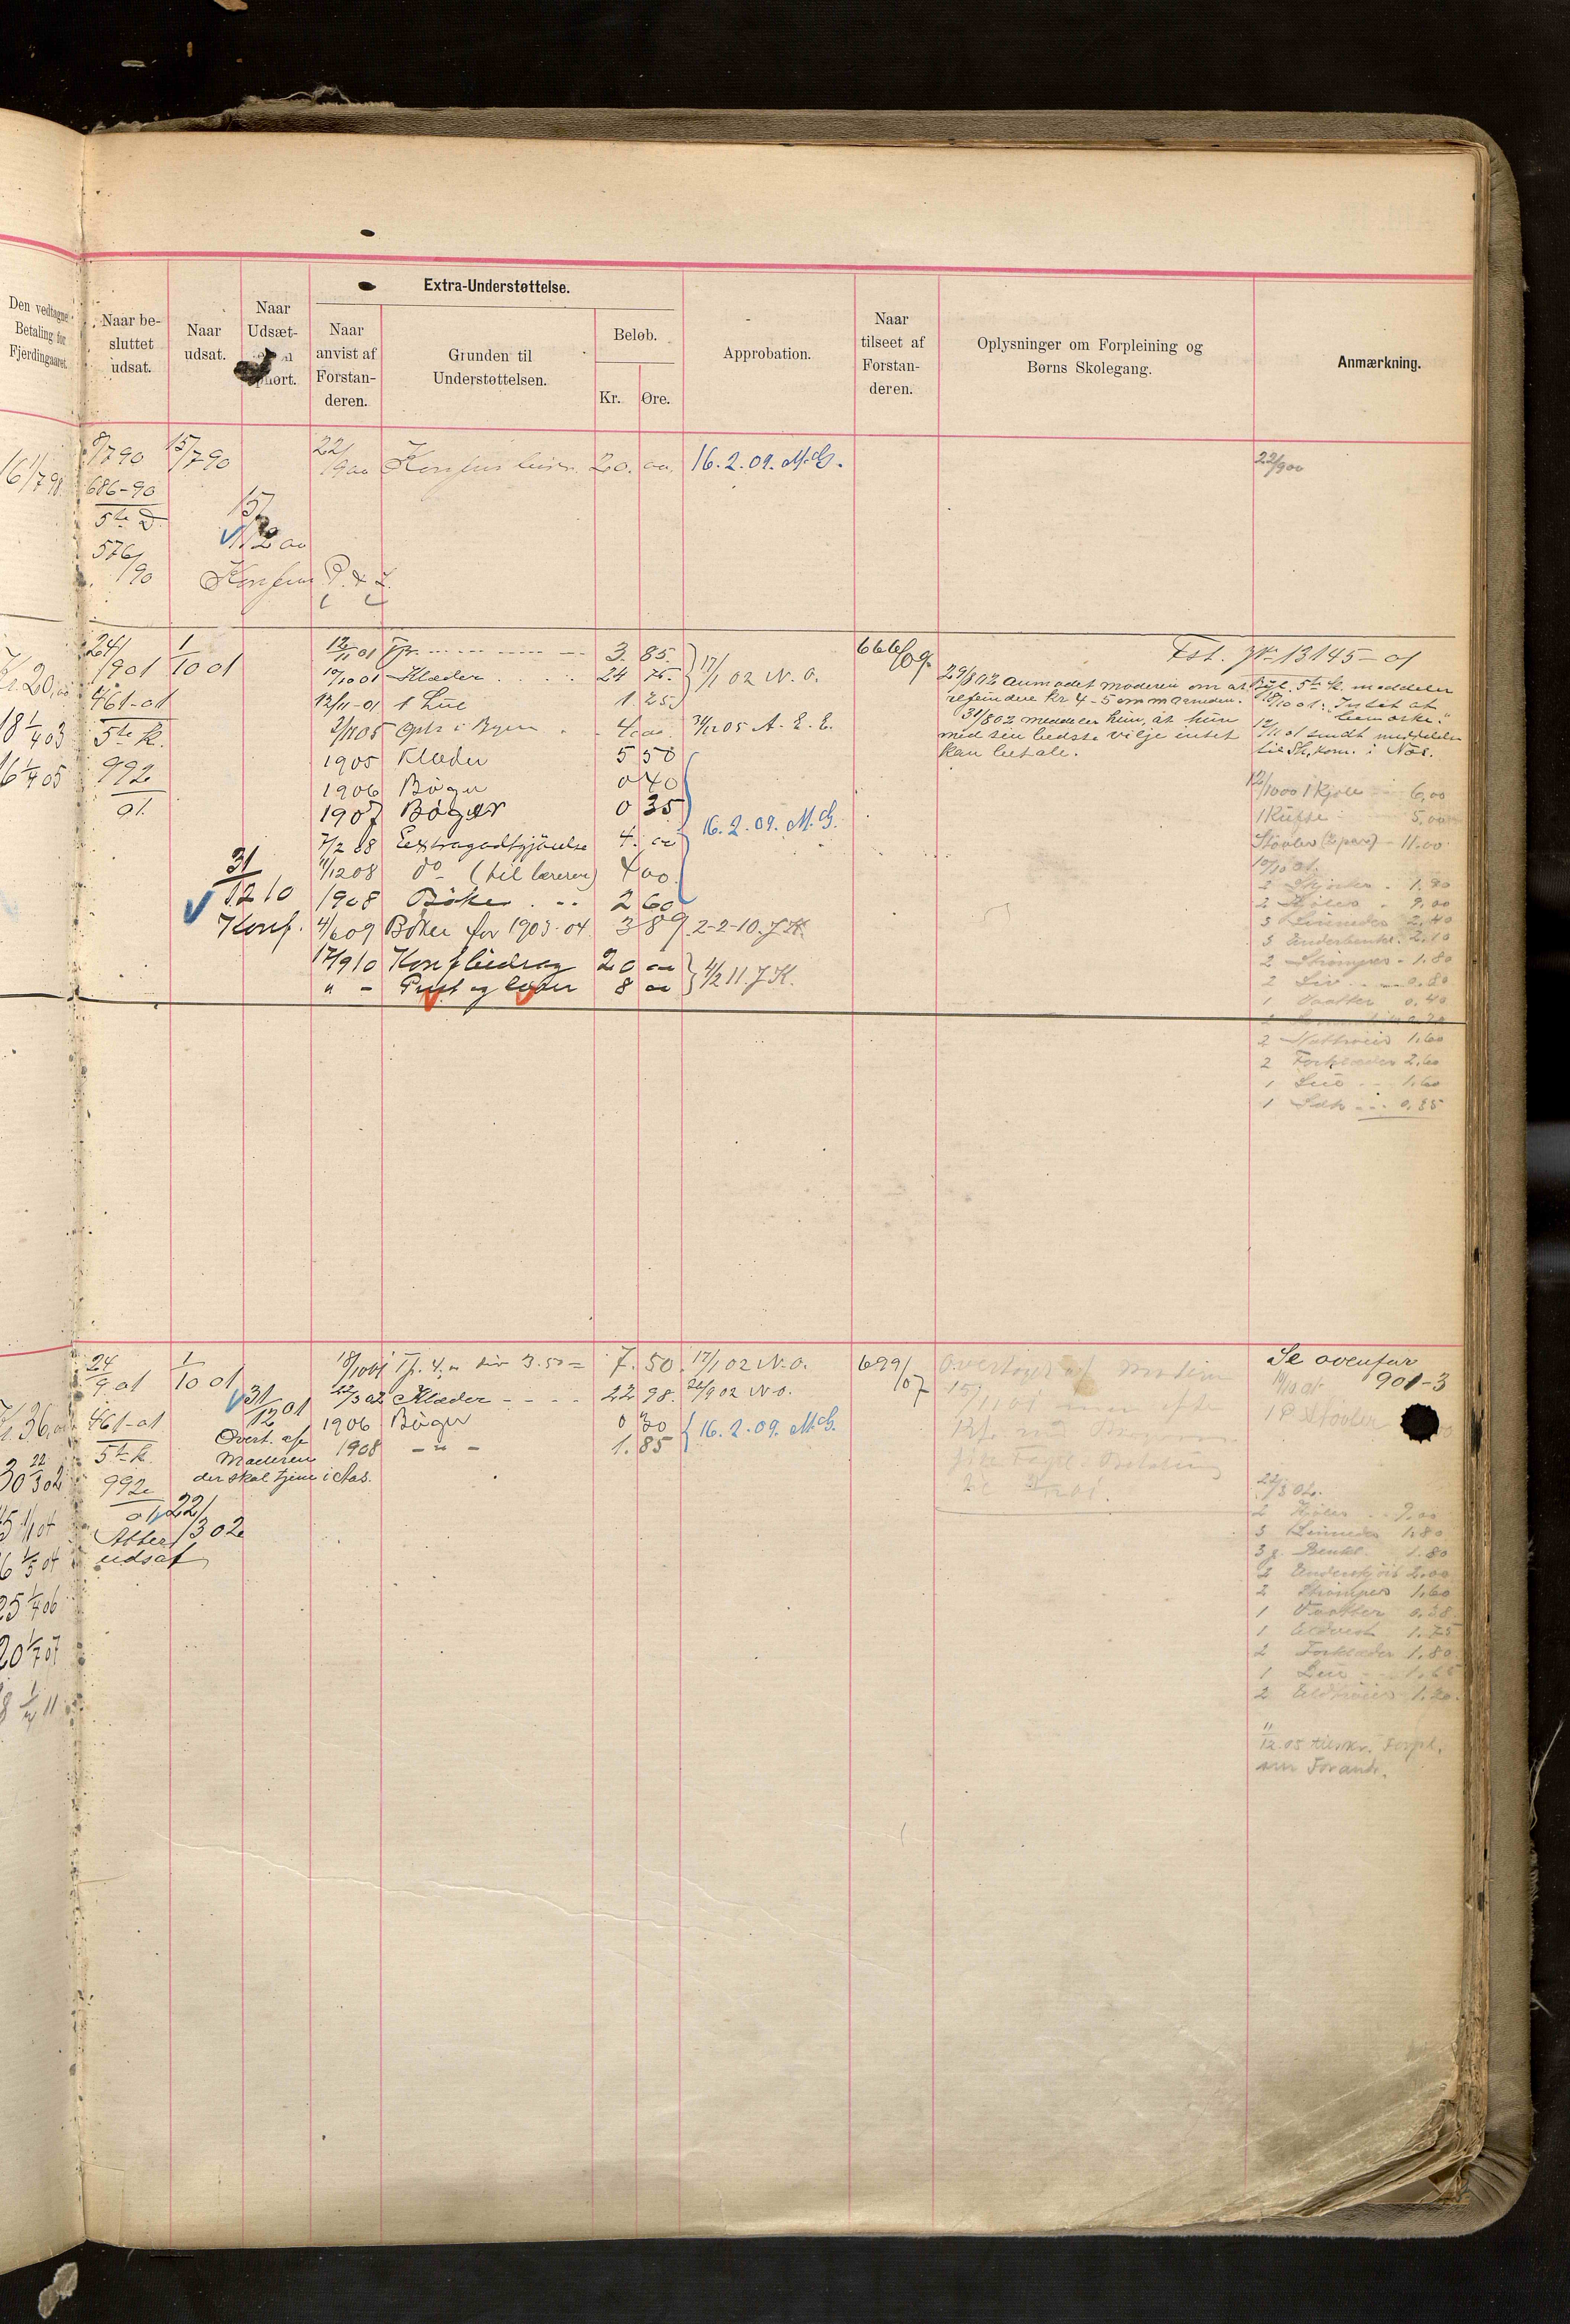 Extra-Understøttelse.
Den vedtagne
Betaling for
Fjerdingaaret.
Naar be-
sluttet
udsat.
Naar
udsat.
Naar
Udsæt-
phørt.
Naar
anvist af
Forstan-
deren.
Grunden til
Understøttelsen.
Beløb.
Kr. Øre.
Approbation.
Naar
tilseet af
Forstan-
deren.
Oplysninger om Forpleining og
Børns Skolegang.
Anmærkning.
16 1/7 98
8/7 90 15/7 90
686-90
5te D.
576/90
15/12 00
22/9 00 20. 00. 16. 2. 09. M.G.
22/9 00
24/9 01 1/10 01
461-01
5te K.
992
01.
Kr. 20,00
18 1/4 03
16 1/4 05
12/11 01 3. 85.
10/10 01 Klæder 24 75. 17/1 02 N. O.
12/11-01 1 Lue 1. 25
2/11 05 i Byen 4. 00. 05 A. E. E.
1905 Klæder 5 50
1906 Bøger 0 40
1907 Bøger 0 35
7/2 08 Extragodtgjørelse 4. 00
11/12 08 do (til læreren) 4 00.
1908 Bøker 2 60
16. 2. 09. M. G.
31/12 10
Konf.
4/6 09 Bøker for 1903-04 3 89 2-2-10. J.K.
17/9 10 Konfbidrag 20 00
" - Prest og 8 00 4/2 11. J.K.
666/09.
Fst. Jr 13145-01
29/8 02 Anmodet moderen om at
refundere Kr 4-5 om maaneden.
31/8 02 meddeler hun, at hun
med sin bedste vilje intet
kan betale.
5te K. meddeler
18/10 01: "Intet at
bemærke."
12/11 01 sendt meddelelse
til Sk. kom. i Næs.
12/10 00 1 Kjole 6,00
1 Kaabe 5,00
Støvler (2 par) - 11.00
10/10 01.
2 1.80
2 Kjoler 9.00
3 Linneder 2.40
3 Underbenkl. 2.10
2 Strømper - 1.80
2 Liv 0.80
1 Vaatter 0.40
2 Nattrøier 1.60
2 Forklæder 2.60
1 Lue 1.60
1 0.85
24/9 01 1/10 01
Kr. 36,00
461-01
5te K.
992
01
30 22/3 02
31/12 01
Overt. af
Moderen
der skal tjene i Aas.
22/3 02
Atter
udsat
15 1/1 04
6 1/5 04
25 1/4 06
20 1/7 07
18/10 01 Tj. 4,00 3.50 = 7. 50. 17/1 02 N. O.
22/3 02 Klæder 22 98. 26/9 02 N. O.
1906 Bøger 0 30
1908 - " - 1. 85
16. 2. 09. M.G.
699/07
Overtaget af moderen
Se ovenfor
901-3
10/10 01
1 P Støvler
22/3 02.
2 Kjoler 9.00
3 Linneder 1.80
3 p. Benkl. 1.80
2 Underskjört 2.00
2 Strømper 1.60
1 Vaatter 0.38
1 Uldvest 1.75
2 Forklæder 1.80
1 Lue 1.65
2 Uldtrøier 1.20.
11/12.05 tilskr. Forpl.
om Forandr.